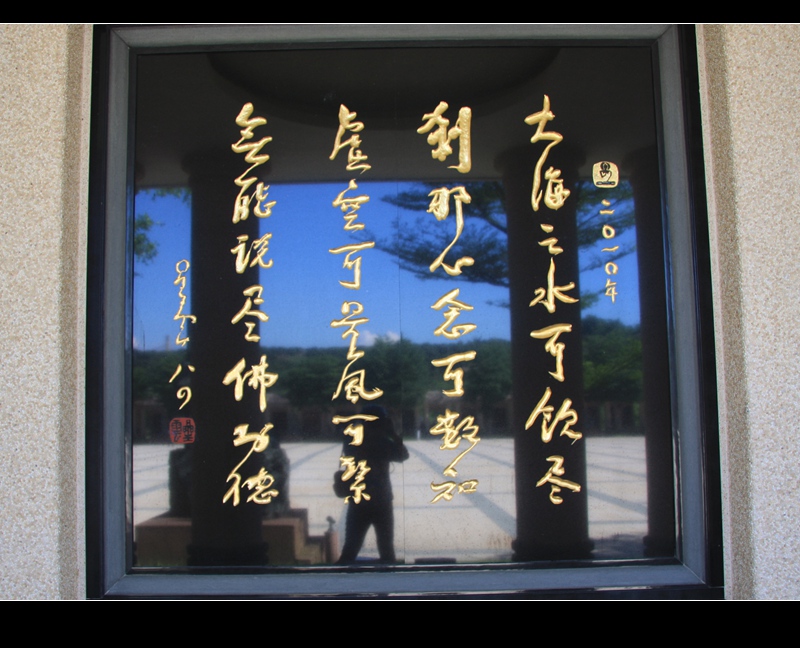 二〇一〇年
大海之水可飲尽
剎那心念可數知
虛空可量風可繫
無能說尽佛功德
星雲 八四